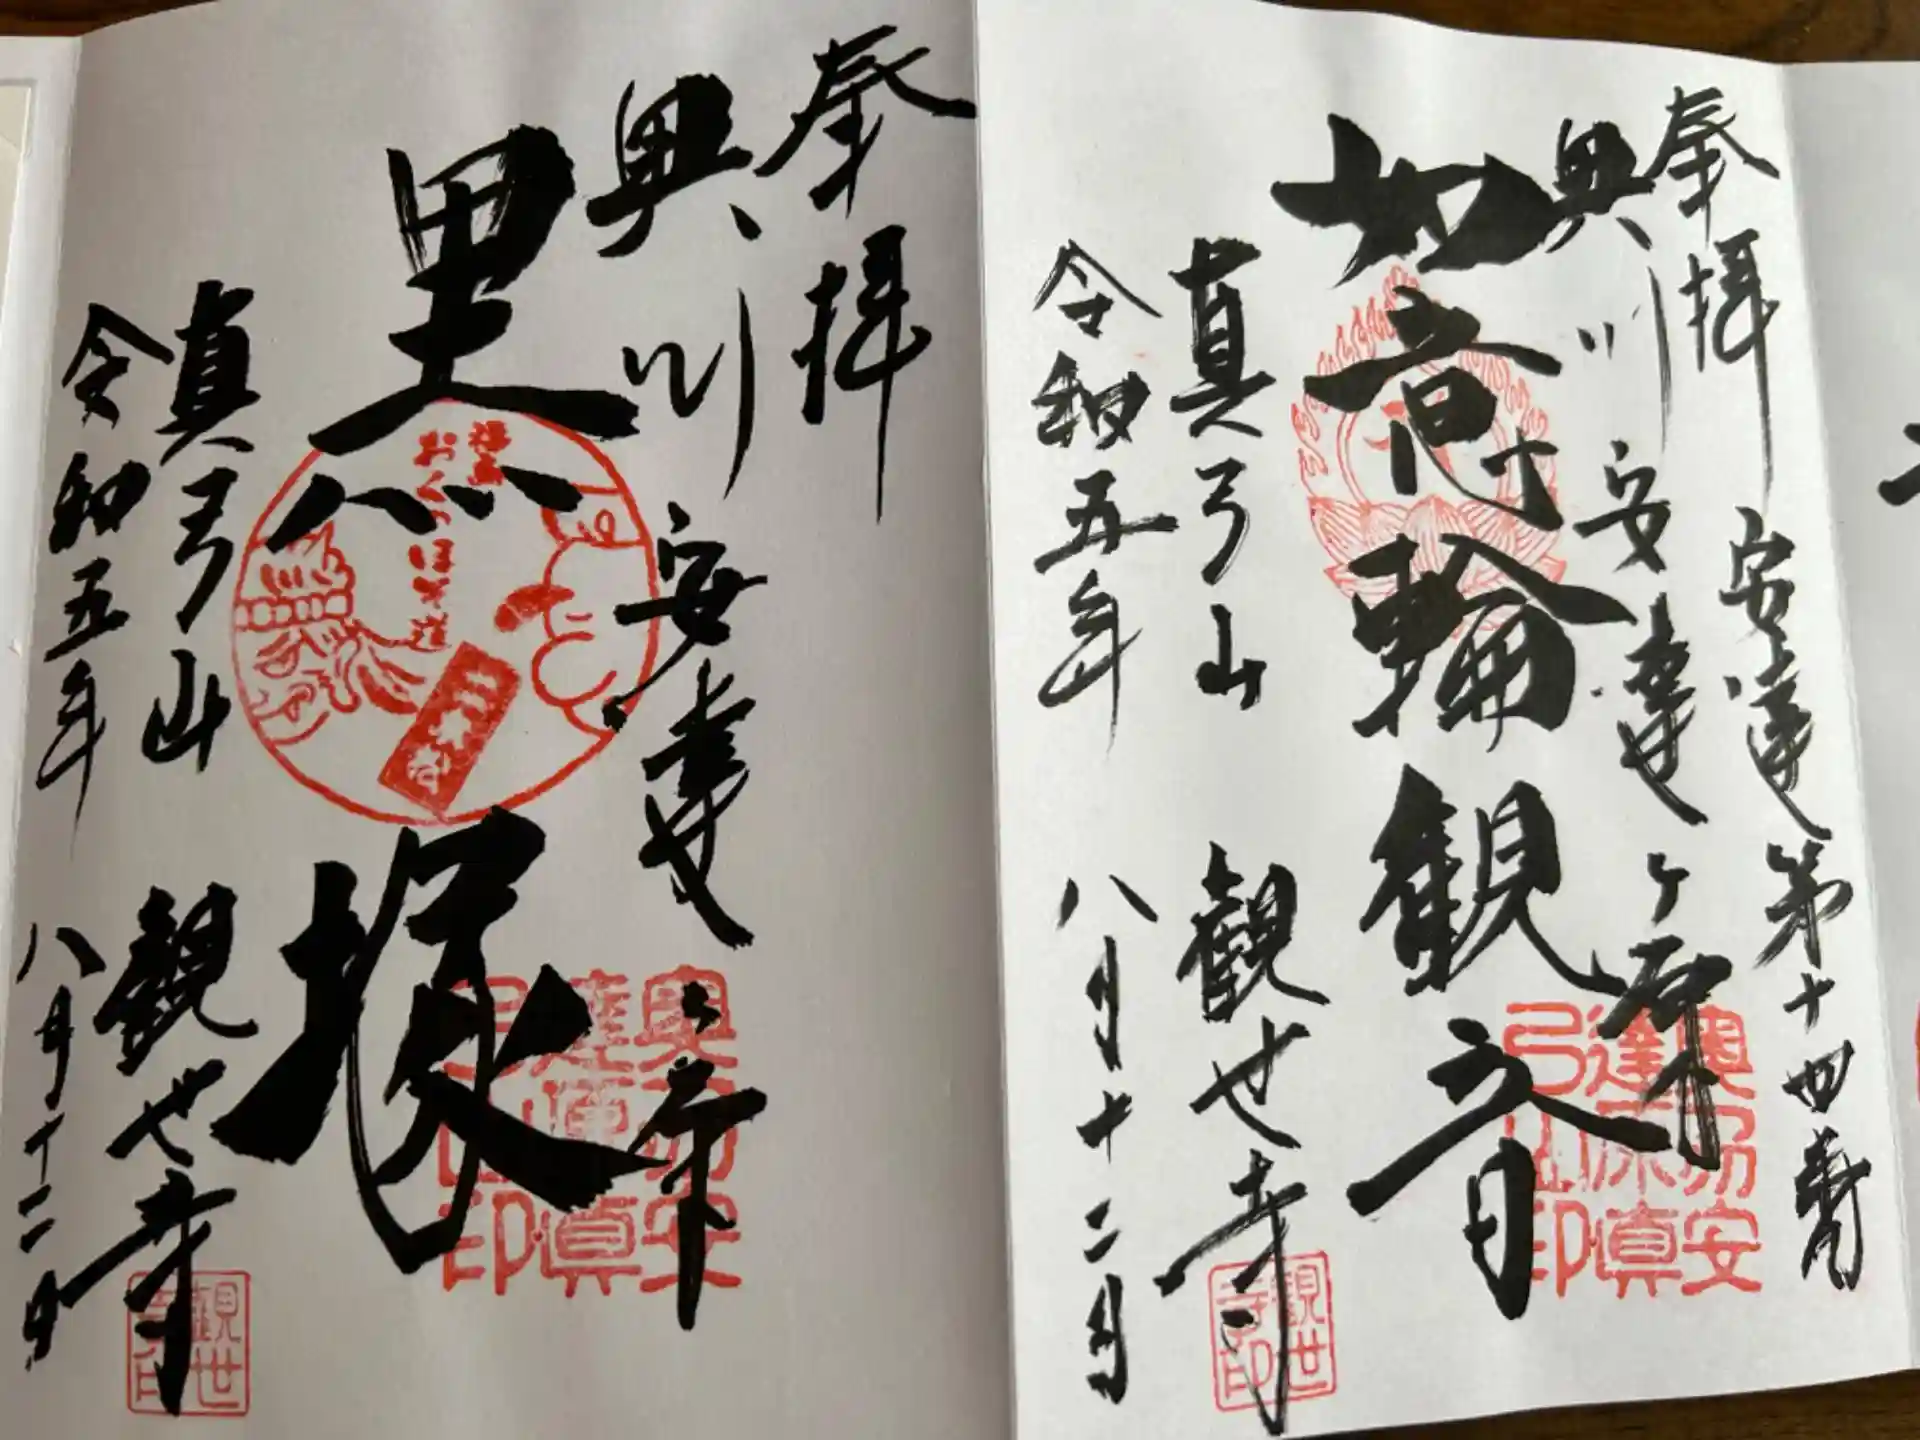 奉拝
安達第十四番
奥州安達ヶ原
如意輪観音
真弓山
観世寺
令和五年
八月十二日
奥州安
達原真
弓山印
観世
寺印
奉拝
奥州安達ヶ原
黒塚
福島
おくのほそ道
二本松
真弓山
観世寺
令和五年
八月十二日
奥州安
達原真
弓山印
観世
寺印